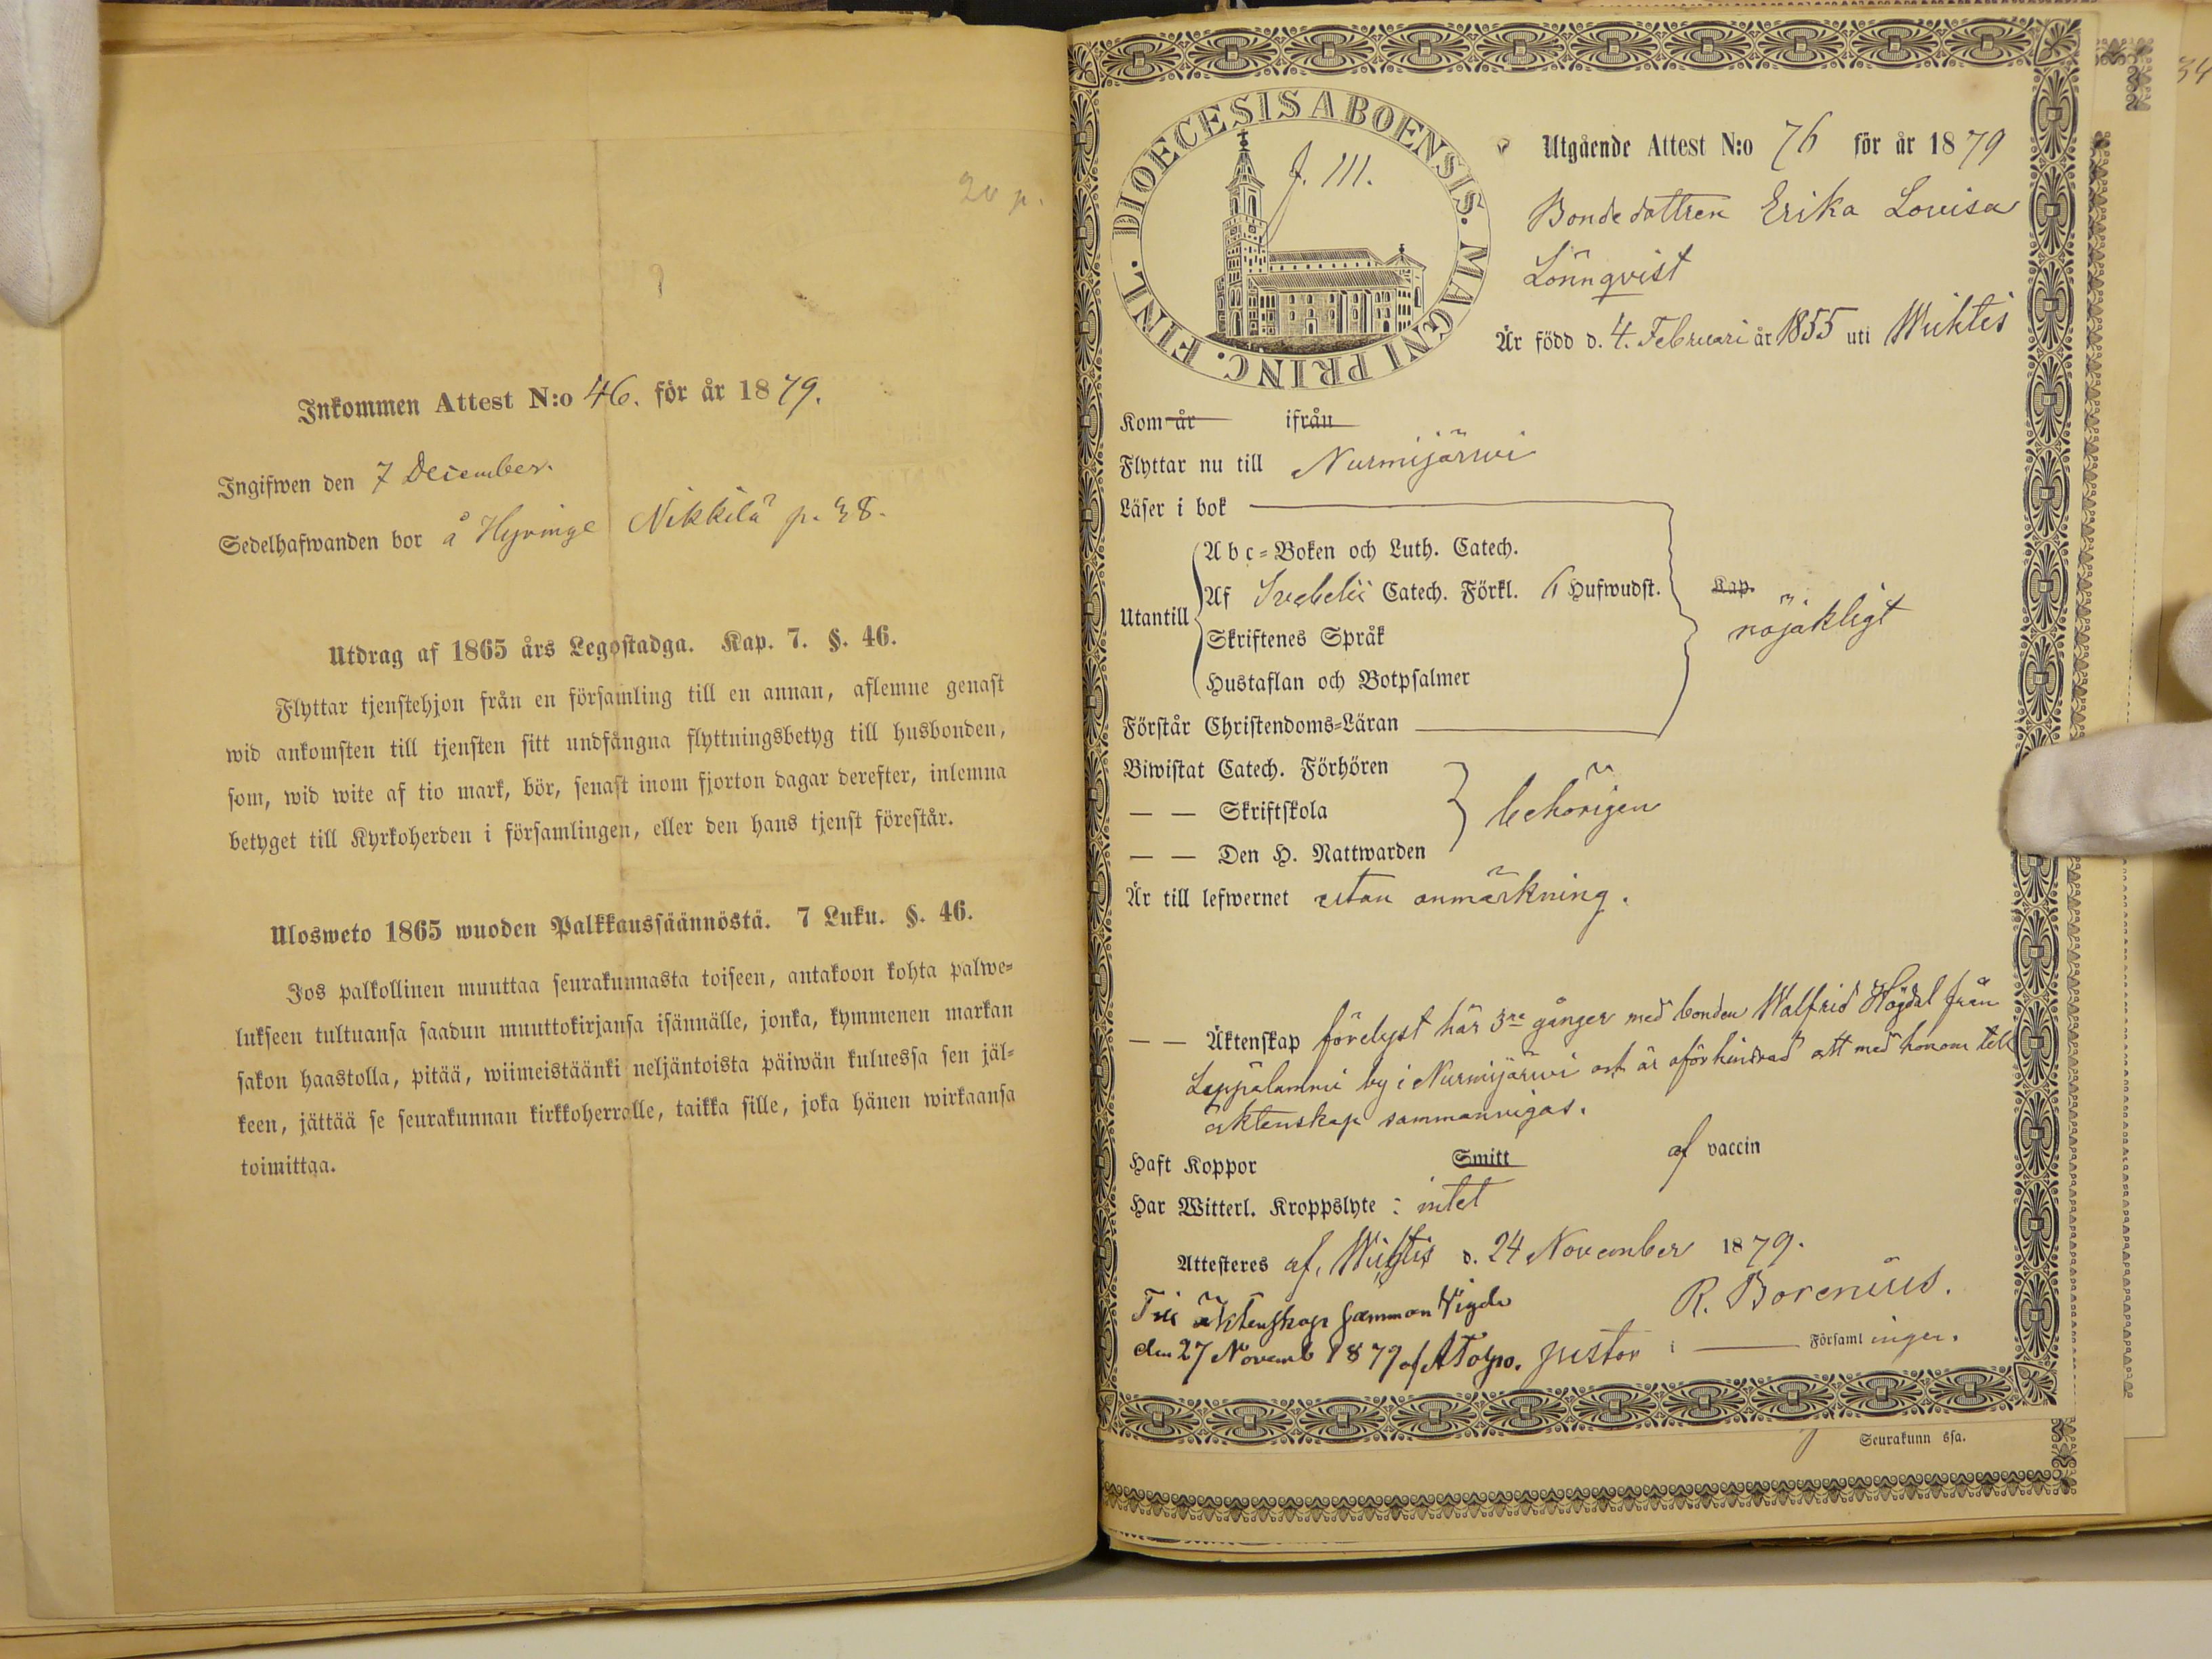 20 p.
Inkommen Attest N:o 46. för år 1879.
Ingifwen den 7 December.
Sedelhafwanden bor å Hyvinge Nikkilä p. 38.
Utdrag af 1865 års Legostadga. Kap. 7. §. 46.
Flyttar tjenstehjon från en församling till en annan, aflemne genast
wid ankomsten till tjensten sitt undfångna flyttningsbetyg till husbonden,
som, wid wite af tio mark, bör, senast inom fjorton dagar derefter, inlemna
betyget till Kyrkoherden i församlingen, eller den hans tjenst förestår.
Ulosweto 1865 wuoden Palkkaussäännöstä. 7 Luku. §. 46.
Jos palkollinen muuttaa seurakunnasta toiseen, antakoon kohta palwe-
lukseen tultuansa saadun muuttokirjansa isännälle, jonka, kymmenen markan
sakon haastolla, pitää, wiimeistäänki neljäntoista päiwän kuluessa sen jäl-
keen, jättää se seurakunnan kirkkoherralle, taikka sille, joka hänen wirkaansa
toimittaa.
34
DIOECESIS ABOENSIS. MAGNI PRINC. FINL.
J. 111.
Utgående Attest N:o 76 för år 1879
Bondedottren Erika Lovisa
Lönnqvist
Är född d. 4. Februari år 1855 uti Wichtis
Kom år ifrån
Flyttar nu till Nurmijärwi
Läser i bok
Utantill
Abc-Boken och Luth. Catech.
Af Svebelii Catech. Förkl. 6 Hufwudst. Kap.
Skriftenes Språk
nöjakligt
Hustaflan och Botpsalmer
Förstår Christendoms-Läran
Biwistat Catech. Förhören
— — Skriftskola
behörigen
— — Den H. Nattwarden
Är till lefwernet utan anmärkning.
— — Äktenskap förelyst här 3ne gånger med bonden Walfrid Högdal från
Leppälammi by i Nurmijärwi och är oförhindrad att med honom till
äktenskap sammanvigas.
Haft Koppor Smitt af vaccin
Har Witterl. Kroppslyte : intet
Attesteres af, Wichtis d. 24 November 1879.
R. Borenius.
Till äktenskap samman Vigde
den 27 Novemb 1879 af
pastor i Församlingen.
Seurakunnassa.